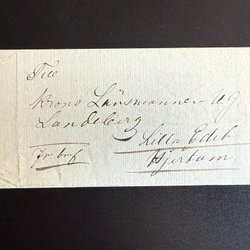 Till
Krono Länsmannen
Landeberg
Lilla Edet
Hjertum
fr bref